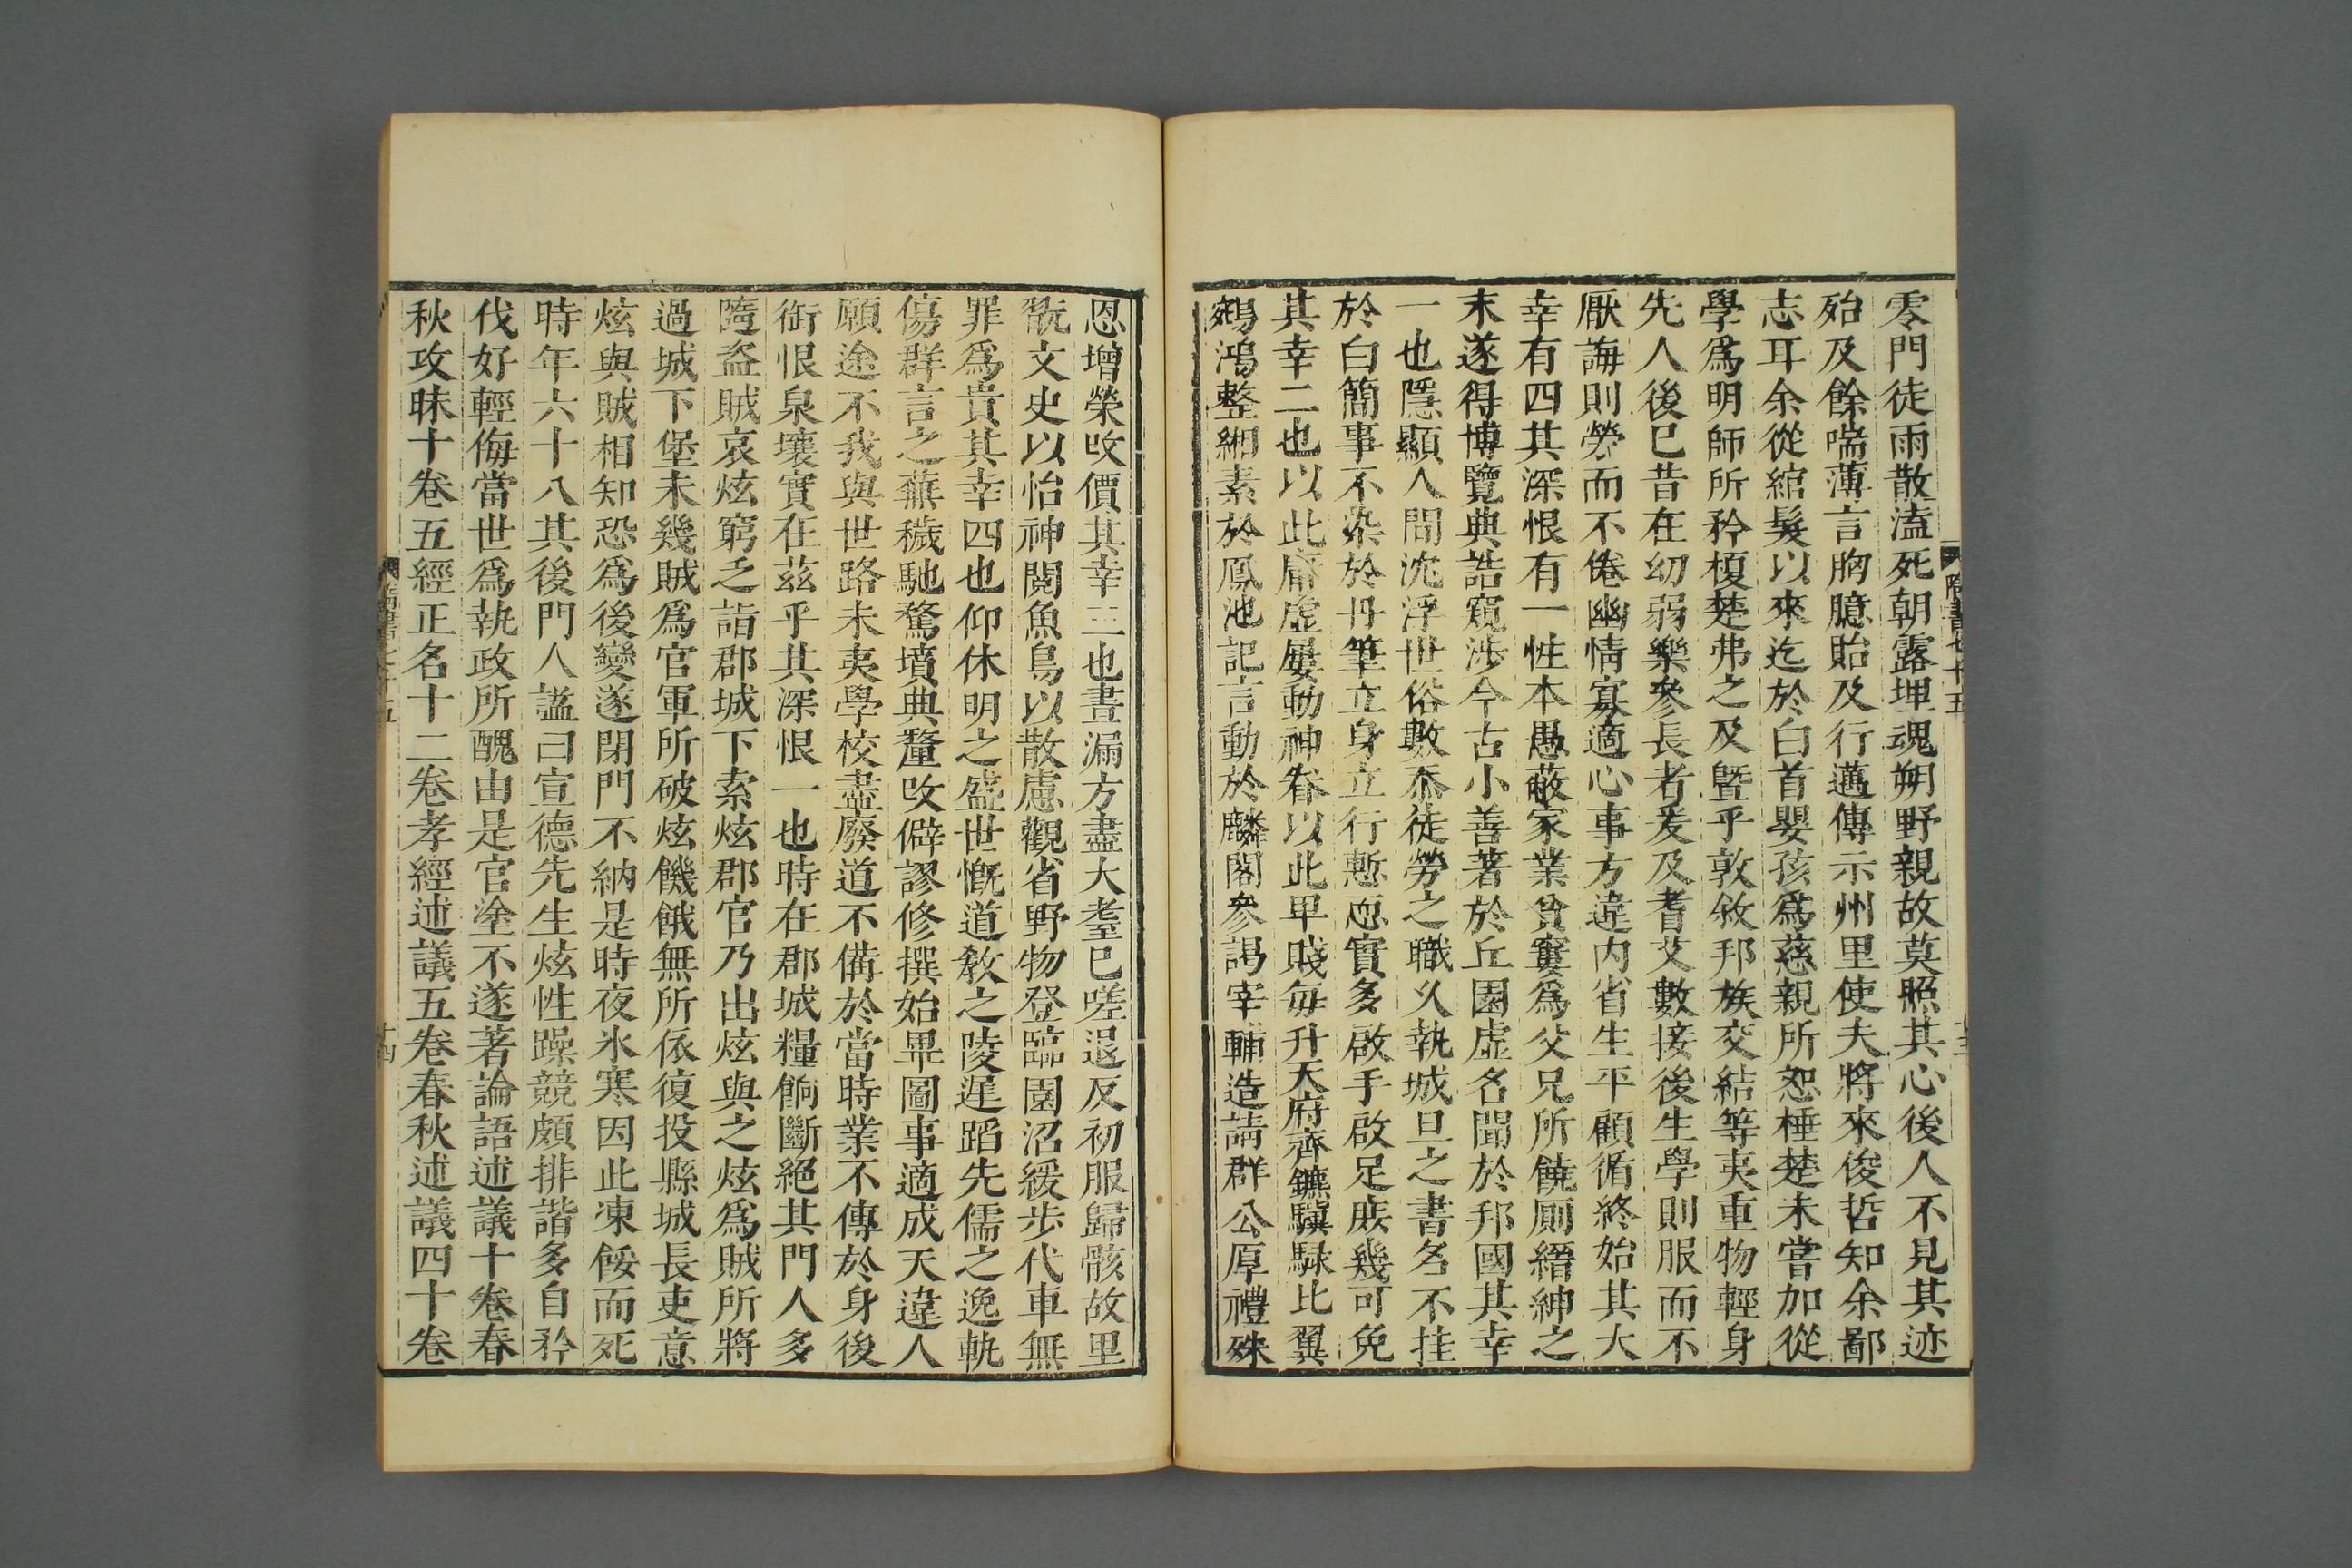 零門徒雨散溘死朝露埋魂朔野親故莫照其心後人不見其迹
殆及餘喘薄言胸臆貽及行邁傳示州里使夫將來俊哲知余鄙
志耳余從綰髮以來迄於白首嬰孩爲慈親所恕棰楚未嘗加從
學爲明師所矜榎楚弗之及暨乎敦敘邦族交結等夷重物輕身
先人後已昔在幼弱樂參長者爰及耆艾數接後生學則服而不
厭誨則勞而不倦幽情寡適心事方違内省生平顧循終始其大
幸有四其深恨有一性本愚蔽家業貧窶爲父兄所饒厠縉紳之
末遂得博覽典誥窺涉今古小善著於丘園虛名聞於邦國其幸
一也隱顯人間沈浮世俗數忝徒勞之職久執城旦之書名不挂
於白簡事不染於丹筆立身立行慙恧實多啟手啟足庶幾可免
其幸二也以此庸虛屢動神眷以此卑賤每升天府齊鑣驥騄比翼
鵷鴻整緗素於鳳池記言動於麟閣參謁宰輔造請群公厚禮殊
隋書七十五
恩增榮改價其幸三也晝漏方盡大耋已嗟退反初服歸骸故里
翫文史以怡神閱魚鳥以散慮觀省野物登臨園沼緩步代車無
罪爲貴其幸四也仰休明之盛世慨道教之陵遲蹈先儒之逸軌
傷群言之蕪穢馳騖墳典釐改僻謬修撰始畢圖事適成天違人
願途不我與世路未夷學校盡廢道不備於當時業不傳於身後
銜恨泉壤實在茲乎其深恨一也時在郡城糧餉斷絕其門人多
隨盜賊哀炫窮乏詣郡城下索炫郡官乃出炫與之炫爲賊所將
過城下堡未幾賊爲官軍所破炫饑餓無所依復投縣城長吏意
炫與賊相知恐爲後變遂閉門不納是時夜氷寒因此凍餒而死
時年六十八其後門人謚曰宣德先生炫性躁競頗排諧多自矜
伐好輕侮當世爲執政所醜由是官塗不遂著論語述議十卷春
秋攻昧十卷五經正名十二卷孝經述議五卷春秋述議四十卷